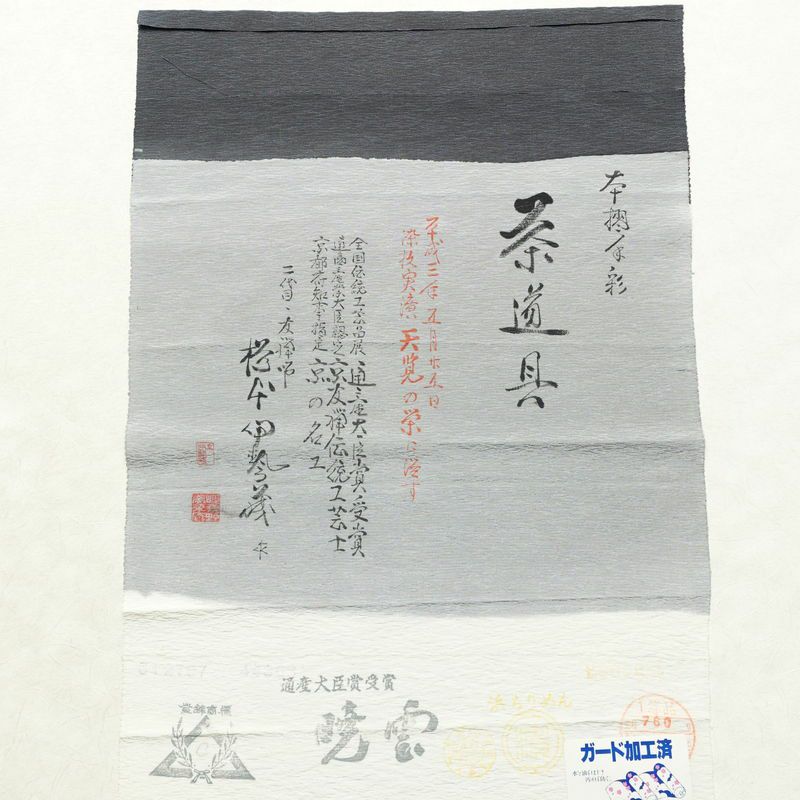 本摺手彩
茶道具
平成三年五月廿五日
染技実演 天覧の栄に浴す
全国伝統工芸品展 通産大臣賞受賞
通商産業大臣認定 京友禅伝統工芸士
京都府知事指定 京の名工
二代目・友禅師
作
通産大臣賞受賞
暁雲
登録商標
浜ちりめん
760
ガード加工済